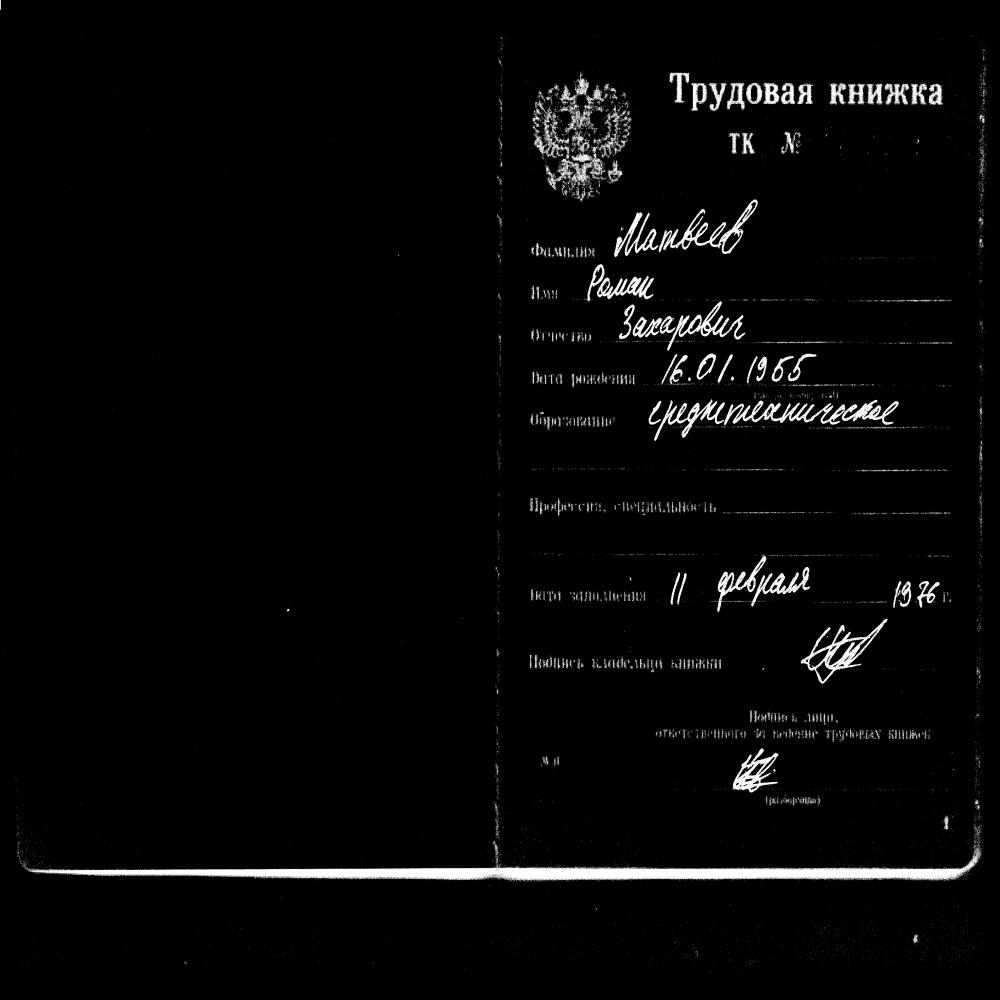 Трудовая книжка
ТК №
Фамилия Матвеев
Имя Роман
Отчество Захарович
Дата рождения 16.01.1955
Образование среднетехническое
Профессия, специальность
Дата заполнения 11 февраля 1976 г.
Подпись владельца книжки
Подпись лица,
ответственного за ведение трудовых книжек
М.П.
(разборчиво)
1